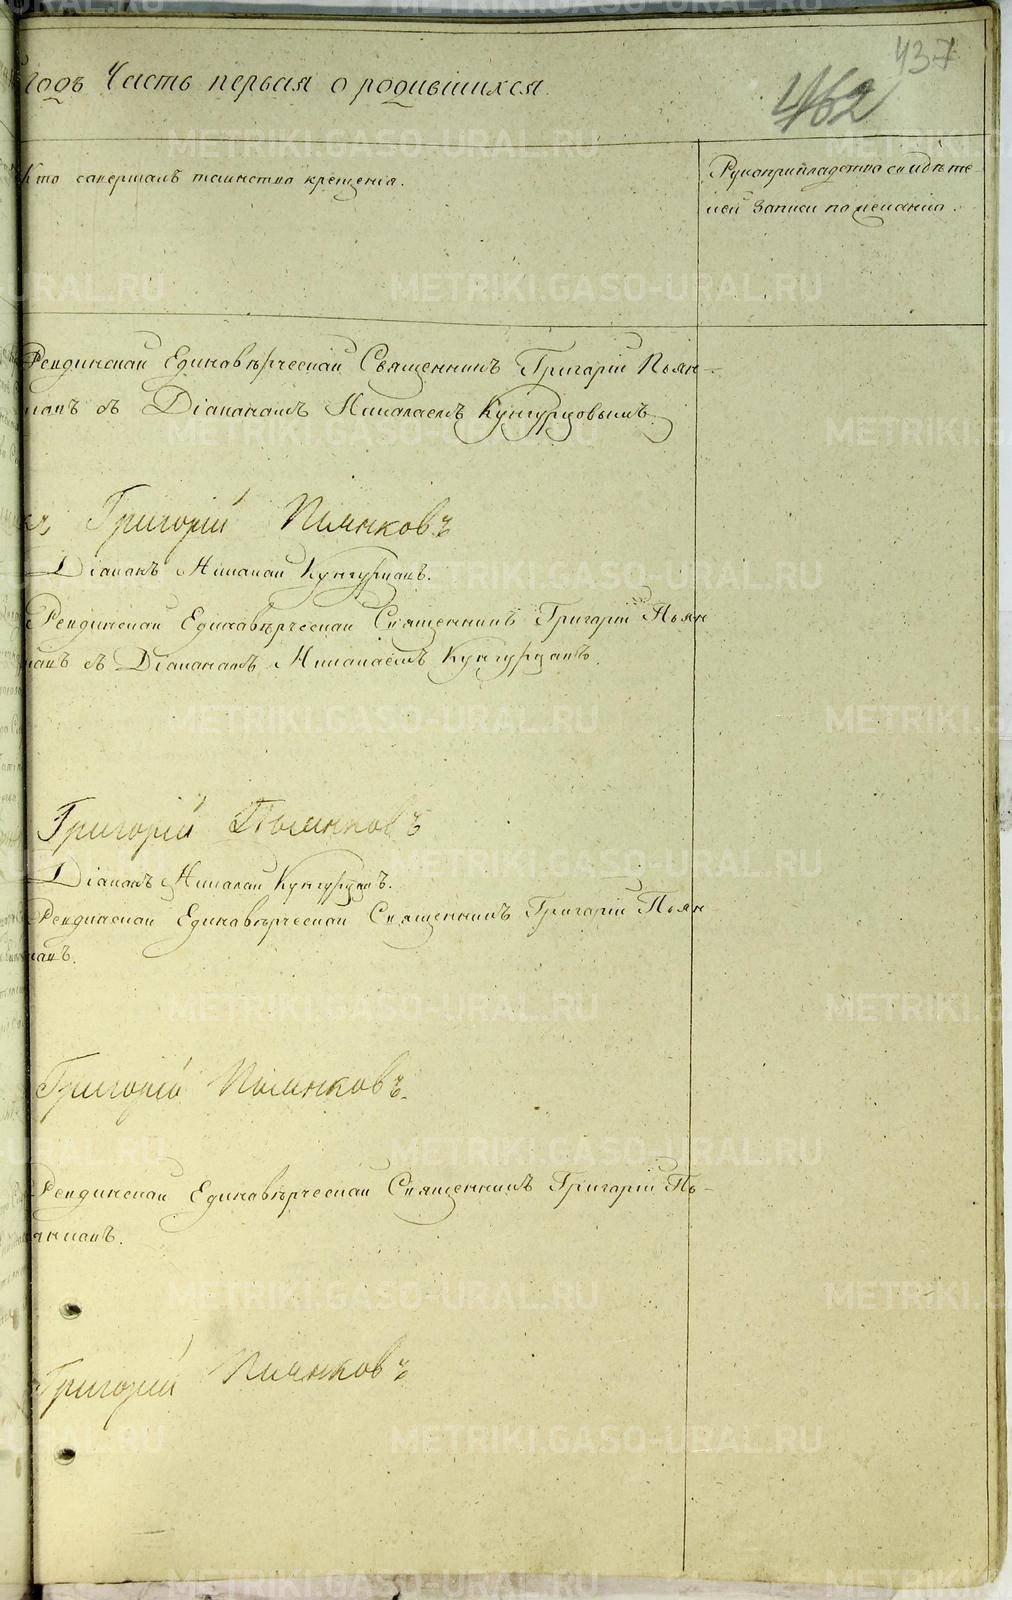 437
462
годъ Часть первая о родившихся.
Кто совершалъ таинство крещенія.
Рукоприкладство свидѣте-
лей записи по желанію.
Ревдинской Единовѣрческой Священникъ Григорій Пьян-
ковъ съ Діакономъ Николаемъ Кунгурцовымъ.
Григорій Пьянковъ
Діаконъ Николай Кунгурцовъ.
Ревдинской Единовѣрческой Священникъ Григорій Пьян
ковъ съ Діакономъ Николаемъ Кунгурцовъ.
Григорій Пьянковъ
Діаконъ Николай Кунгурцовъ.
Ревдинской Единовѣрческой Священникъ Григорій Пьян
ковъ.
Григорій Пьянковъ.
Ревдинской Единовѣрческой Священникъ Григорій Пь-
янковъ.
Григорій Пьянковъ
METRIKI.GASO-URAL.RU